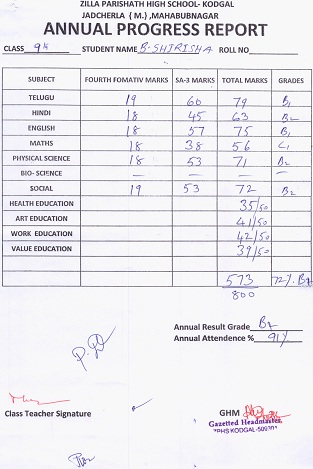 ZILLA PARISHATH HIGH SCHOOL- KODGAL
JADCHERLA ( M.) ,MAHABUBNAGAR
ANNUAL PROGRESS REPORT
CLASS 9th STUDENT NAME B-SHIRISHA ROLL NO
SUBJECT FOURTH FOMATIV MARKS SA-3 MARKS TOTAL MARKS GRADES
TELUGU 19 60 79 B1
HINDI 18 45 63 B2
ENGLISH 18 57 75 B1
MATHS 18 38 56 C1
PHYSICAL SCIENCE 18 53 71 B2
BIO- SCIENCE — — — —
SOCIAL 19 53 72 B2
HEALTH EDUCATION 35/50
ART EDUCATION 41/50
WORK EDUCATION 42/50
VALUE EDUCATION 39/50
573 72%. B2
800
Annual Result Grade B2
Annual Attendence % 91%
Class Teacher Signature
GHM
Gazetted Headmaster,
ZPHS KODGAL-509301